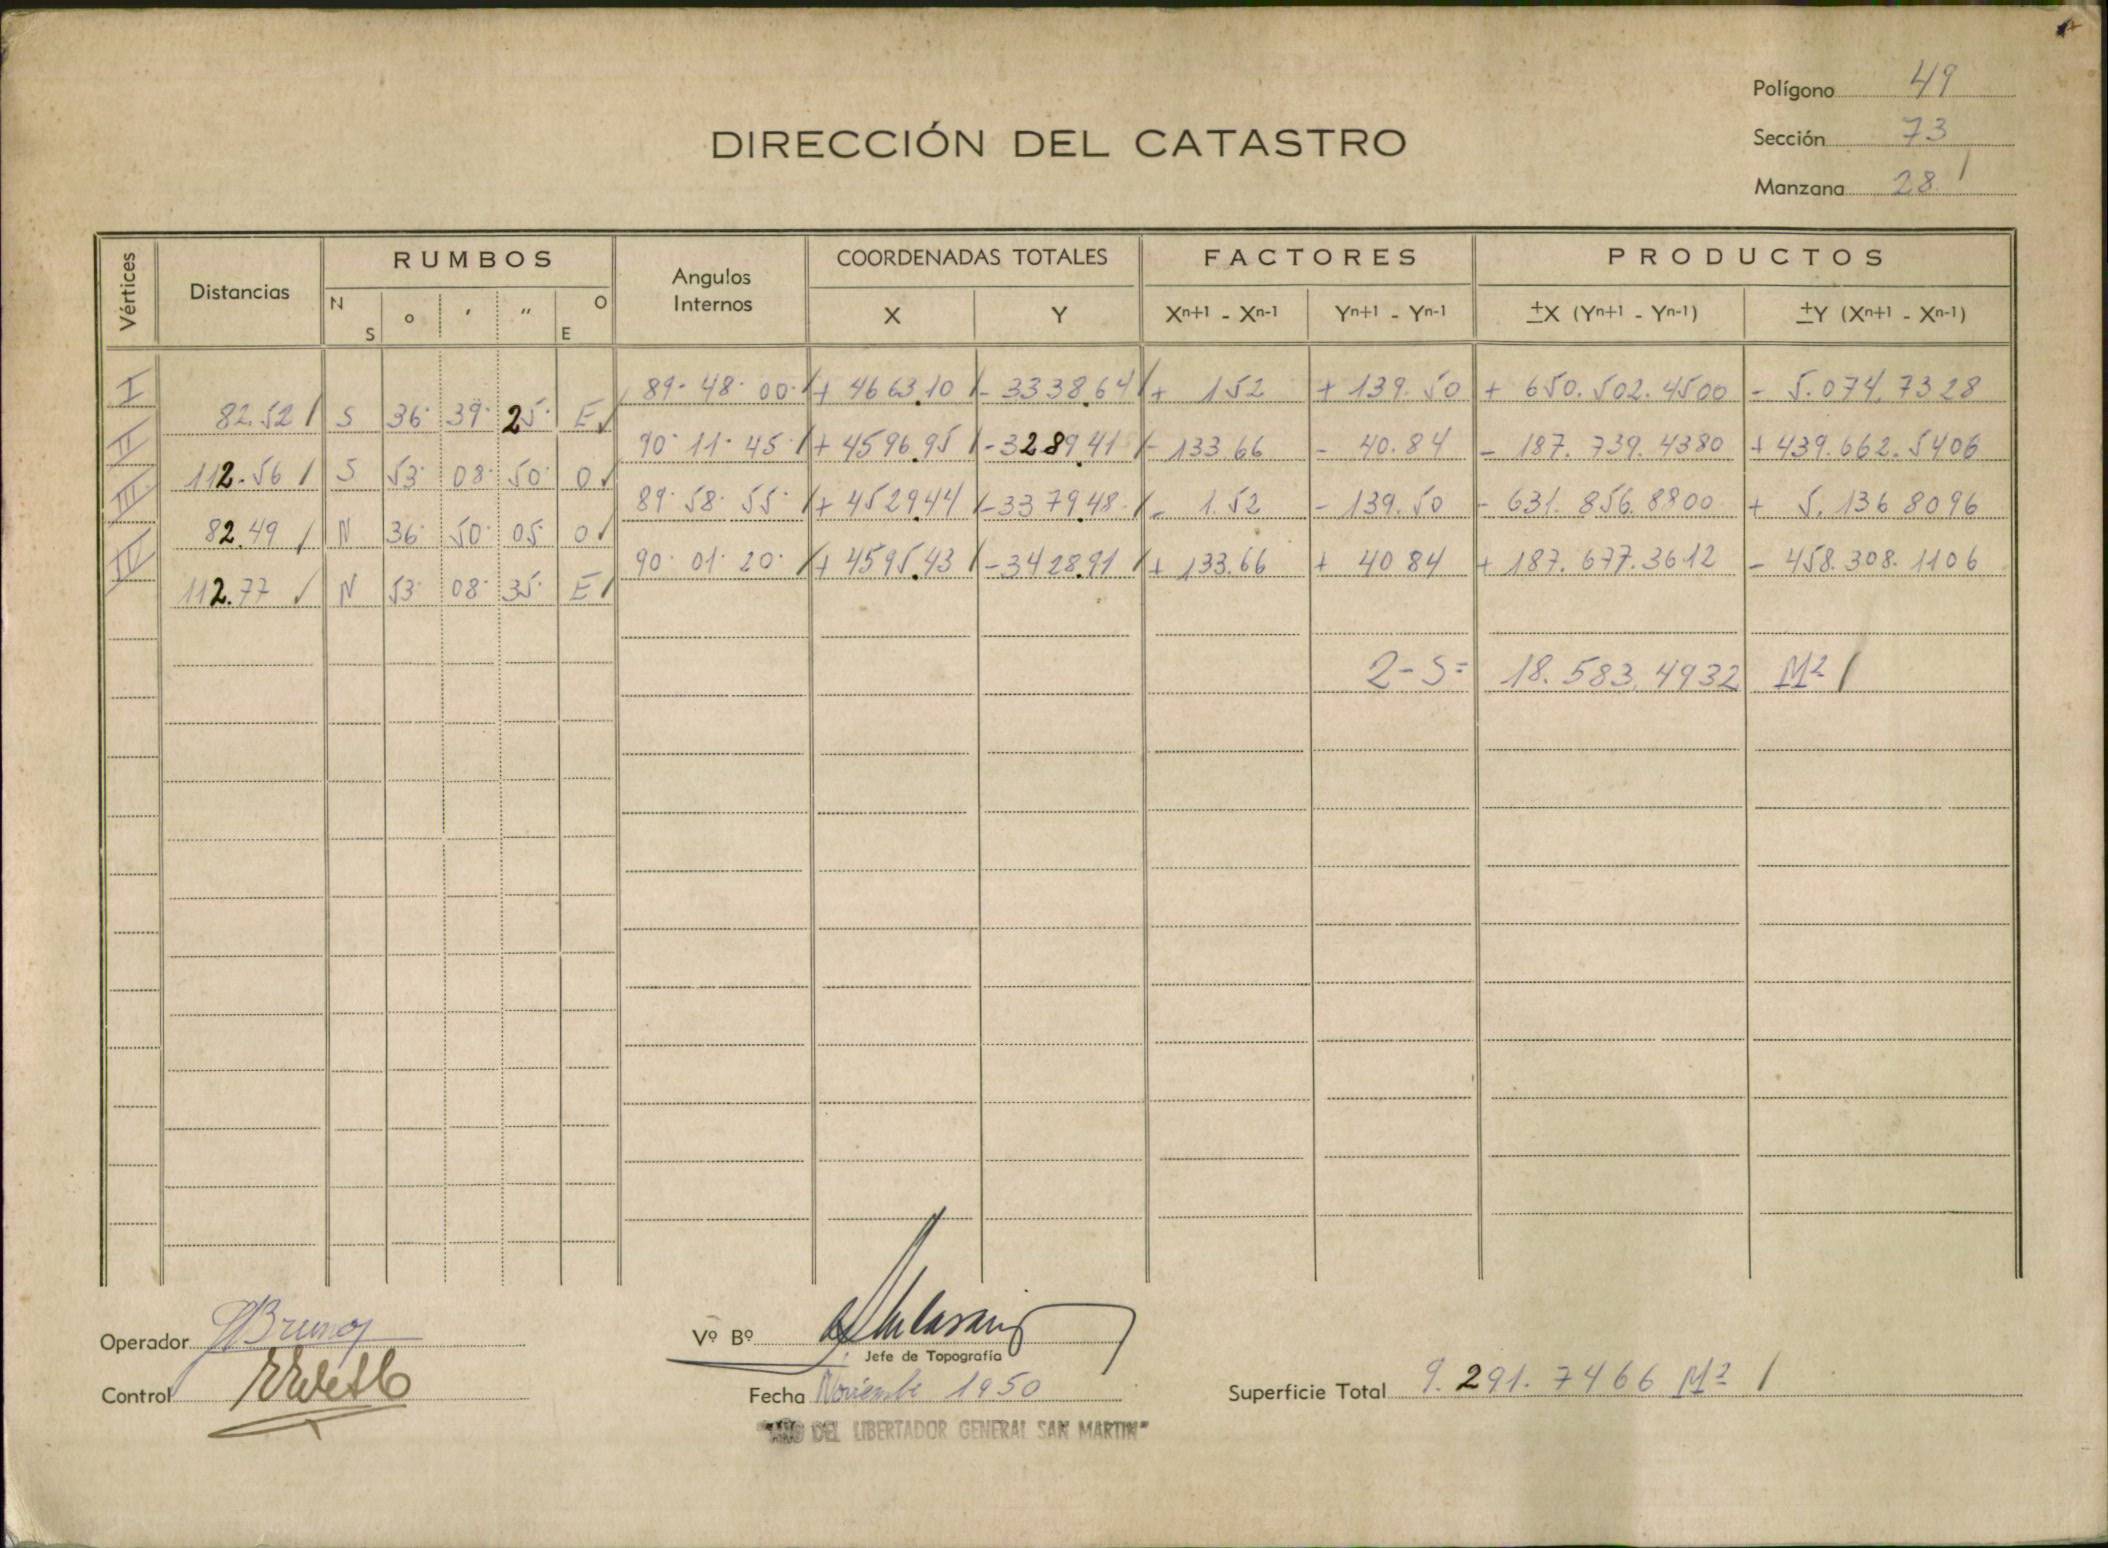 Polígono 49
DIRECCIÓN DEL CATASTRO
Sección 73
Manzana 28
Vértices Distancias RUMBOS Angulos Internos COORDENADAS TOTALES FACTORES PRODUCTOS
N S o ′ ″ O E X Y Xn+1 - Xn-1 Yn+1 - Yn-1 ±X (Yn+1 - Yn-1) ±Y (Xn+1 - Xn-1)
I 89· 48· 00· + 4663.10 - 3338.64 + 152 + 139.50 + 650.502.4500 - 5.074.7328
82.52 S 36· 39· 25· E
II 90· 11· 45· + 4596.95 - 3289.41 - 133.66 - 40.84 - 187.739.4380 + 439.662.5406
112.56 S 53· 08· 50· O
III 89· 58· 55· + 4529.44 - 3379.48 - 1.52 - 139.50 - 631.856.8800 + 5.136 8096
82.49 N 36· 50· 05 O
IV 90· 01· 20· + 4595.43 - 3428.91 + 133.66 + 40 84 + 187.677.3612 - 458.308.1106
112.77 N 53· 08· 35· E
2-S= 18.583.4932 M2
Operador Bruno
Vº Bº
Jefe de Topografía
Control
Fecha Noviembre 1950
Superficie Total 9.291.7466 M2
"AÑO DEL LIBERTADOR GENERAL SAN MARTIN"